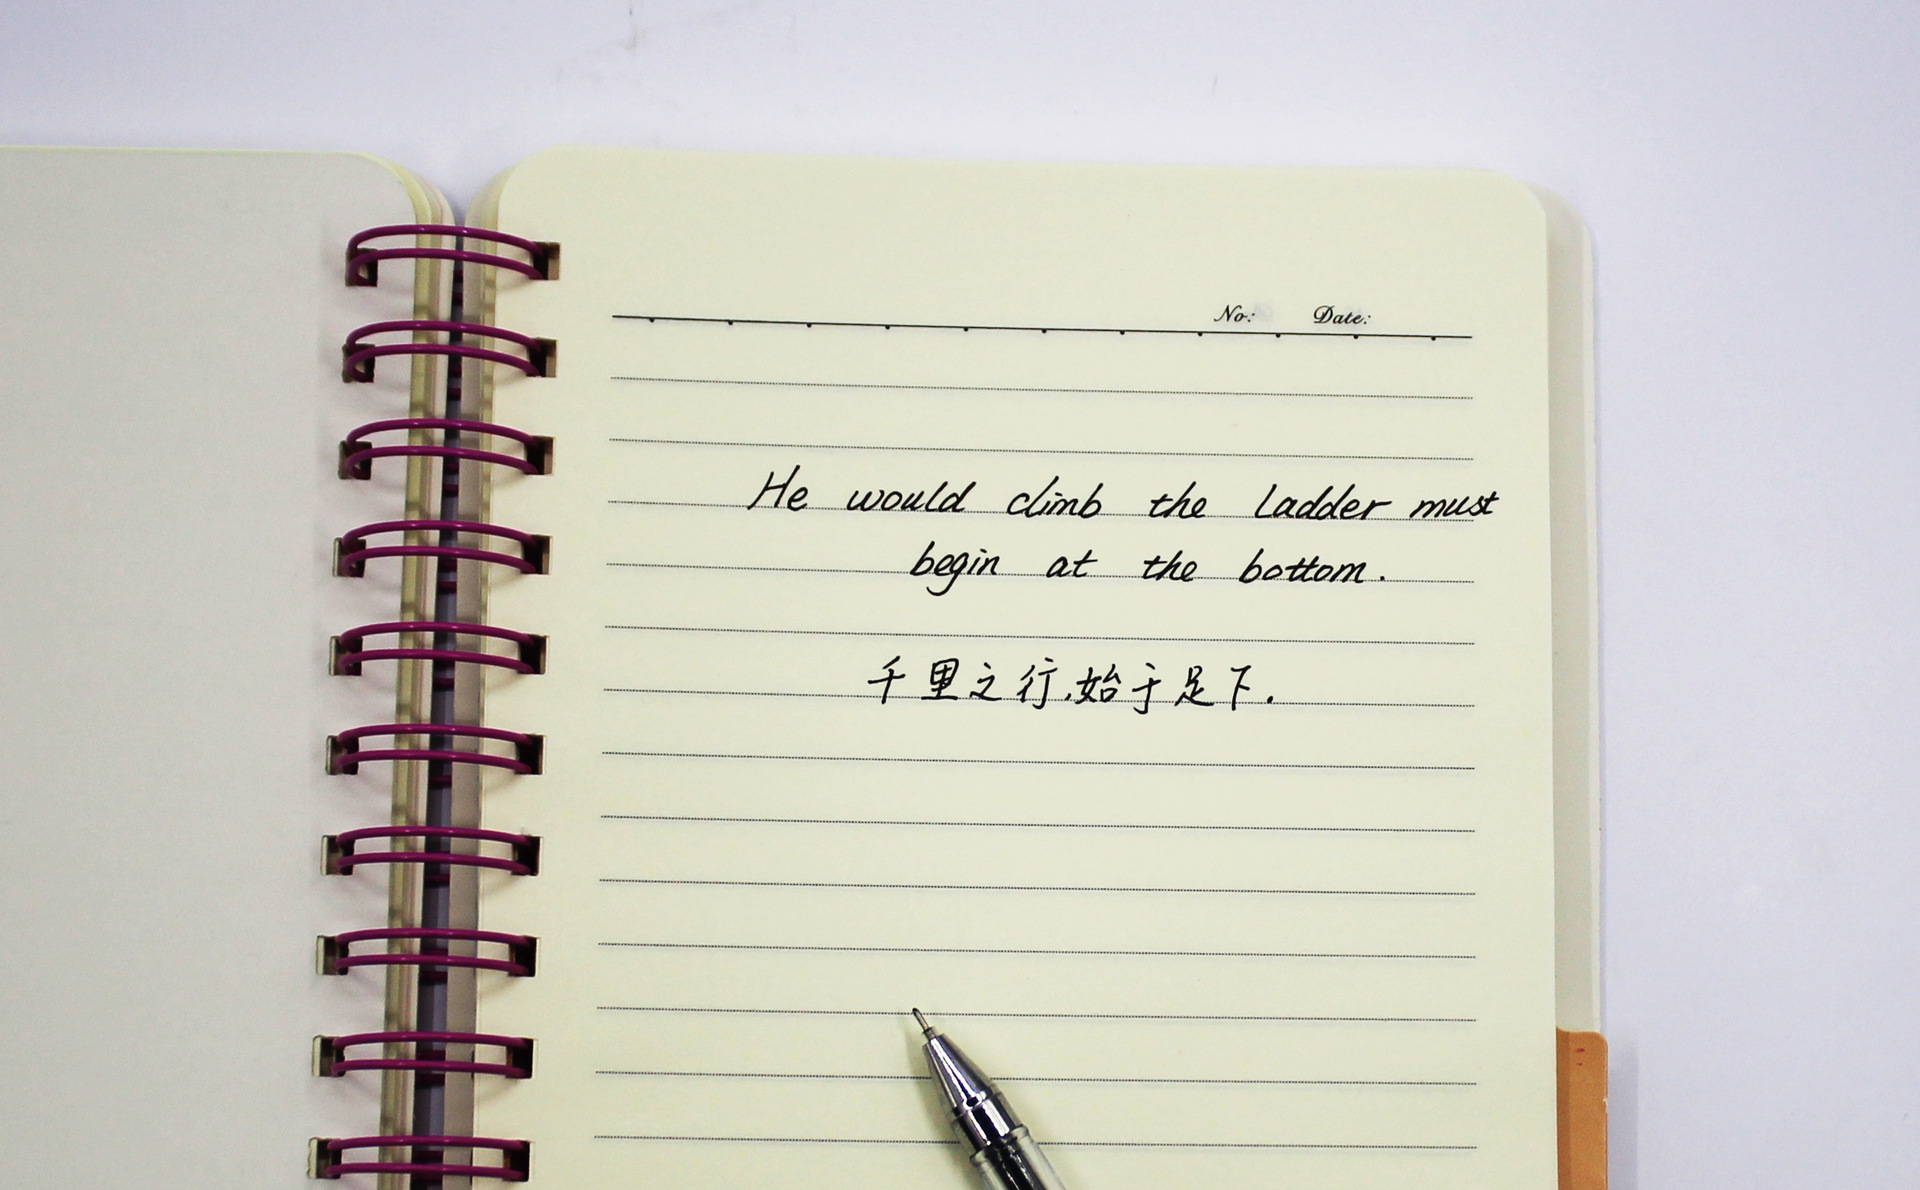 No: Date:
He would climb the ladder must
begin at the bottom.
千里之行,始于足下.